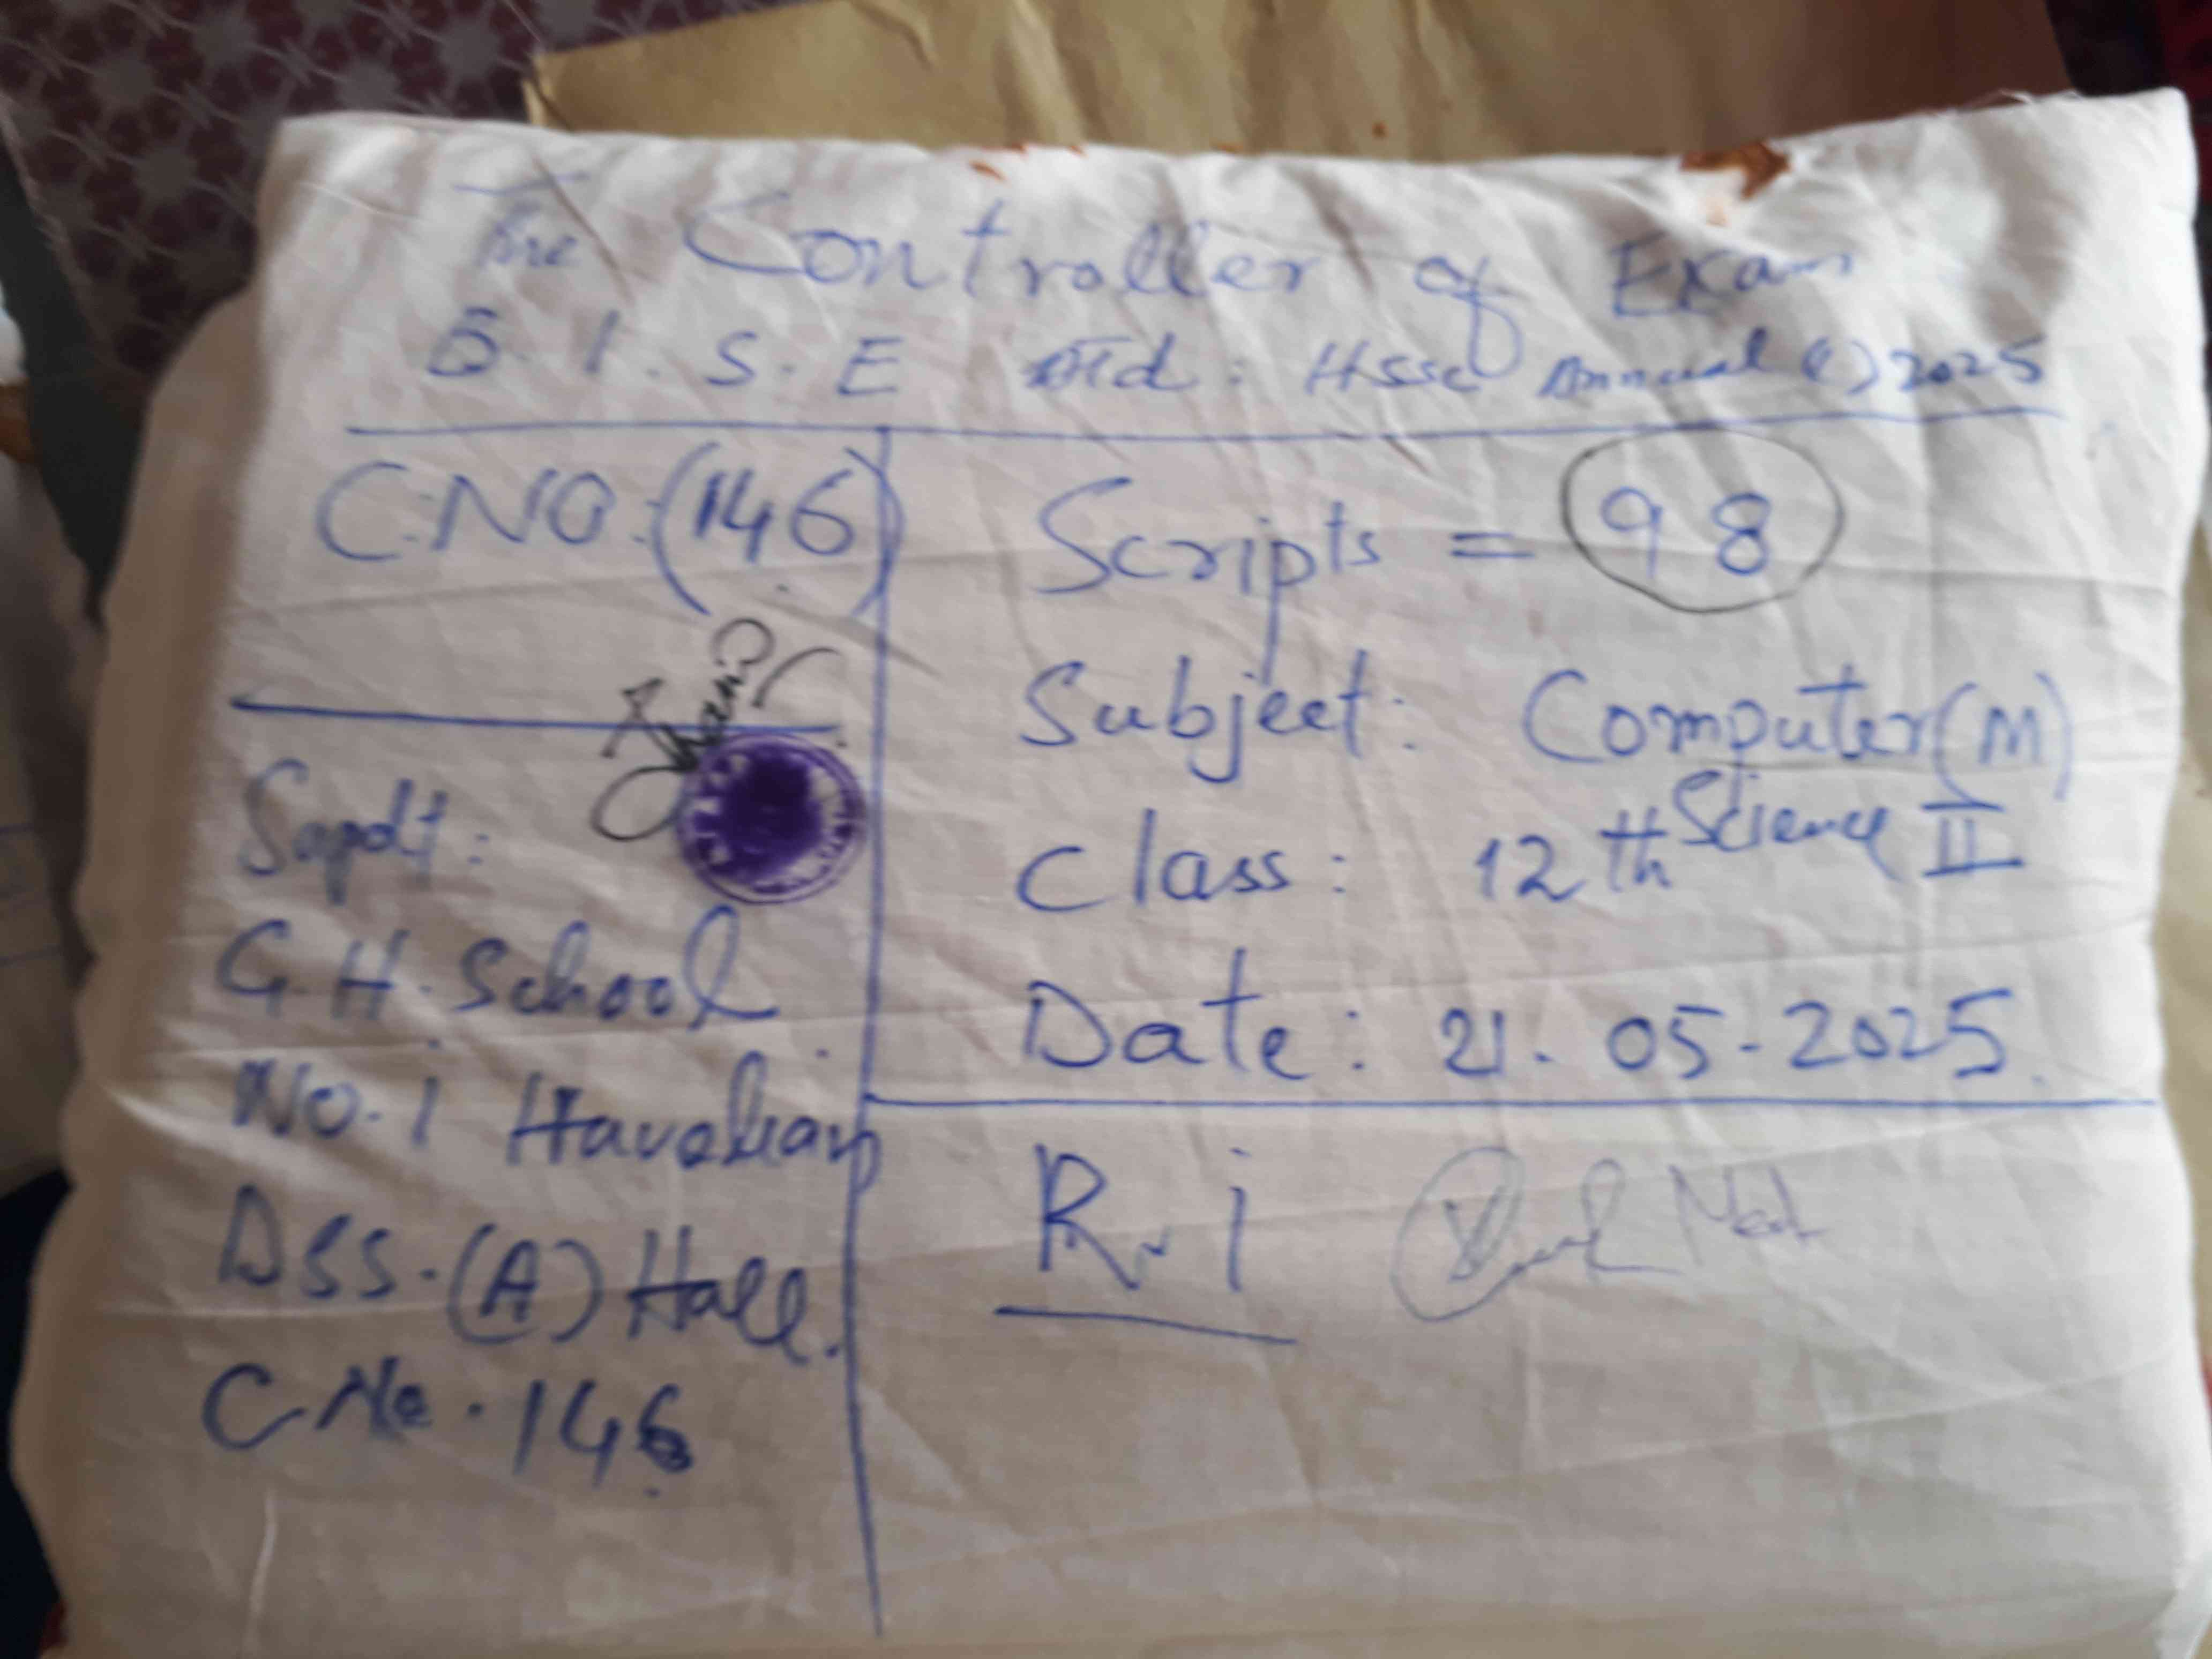 The Controller of Exam
B.I.S.E ATd: HSSC Annual (1) 2025
C.NO:(146)
Supdt:
G.H.School
No.1 Havelian
DSS.(A) Hall.
C.No.146
Scripts = 98
Subject: Computer (M)
Science II
Class: 12th
Date: 21.05-2025.
R.i